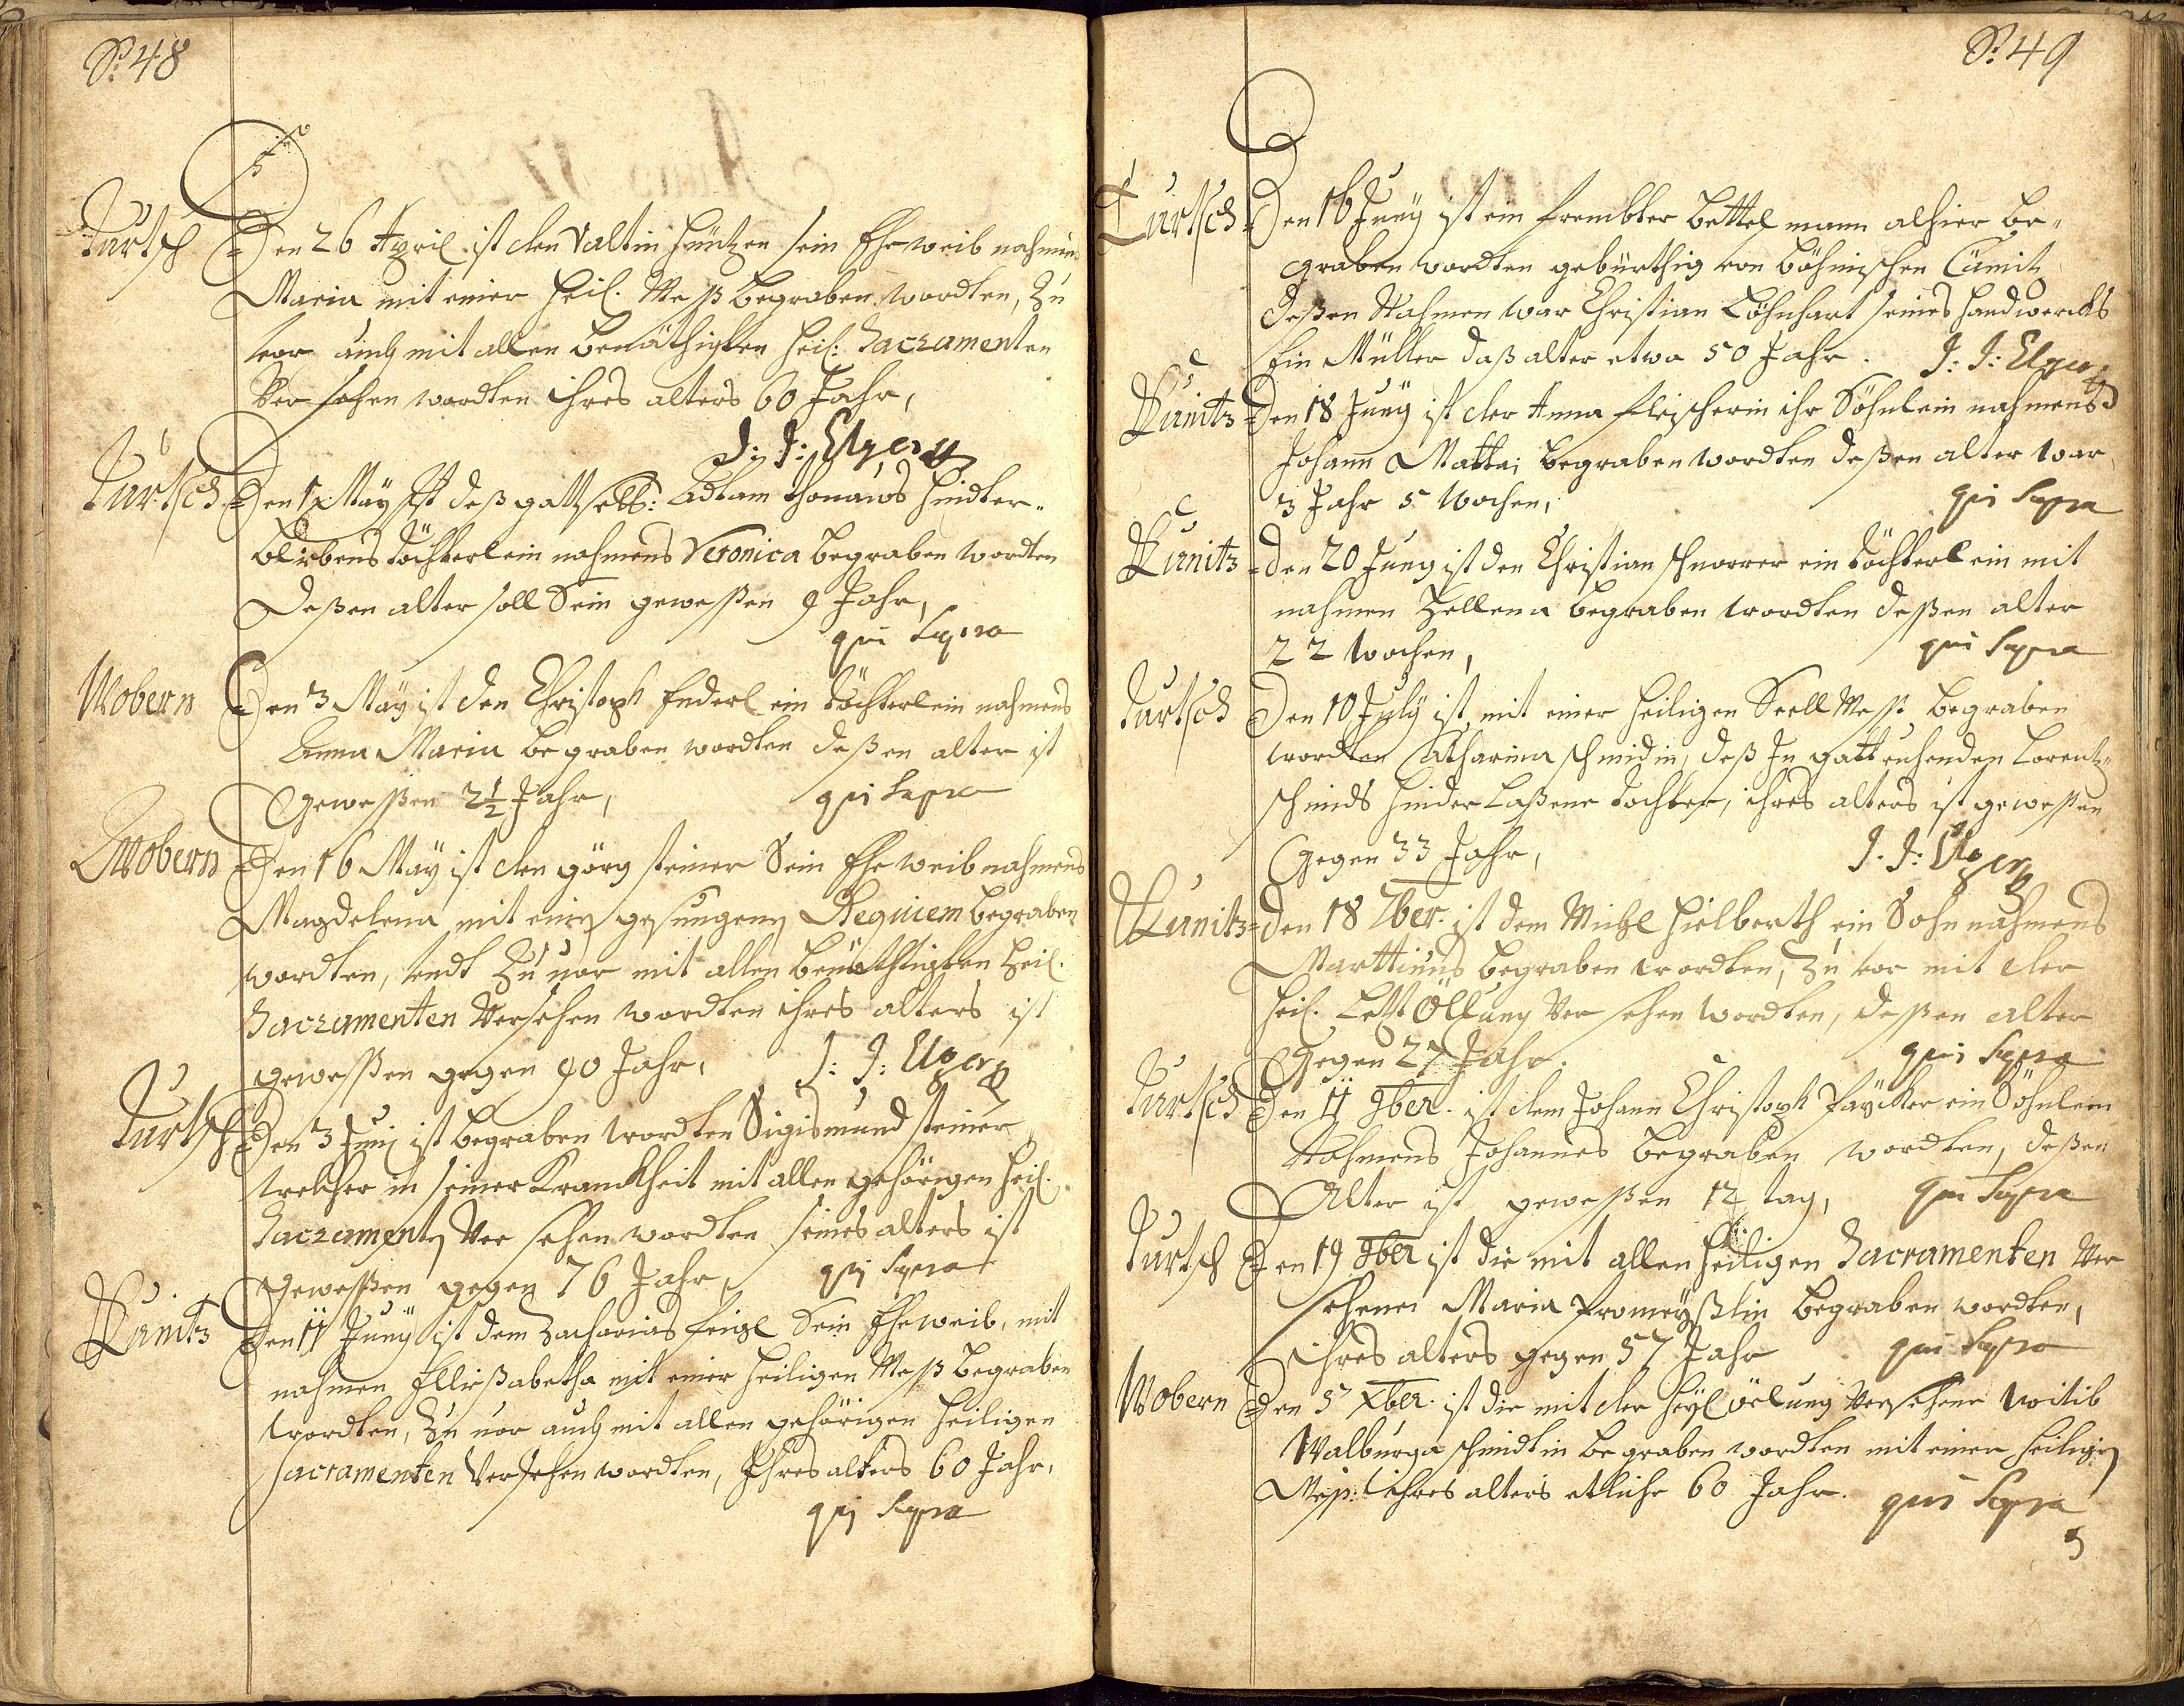 P: 48
Turtsch Den 26 April ist den Valtin Hüntzen sein Eheweib nahmens
Maria mit einer Heil. Meß begraben wordten, zu
vor auch mit allen benöthigten Heil: Sacramenten
Versehen wordten ihres alters 60 Jahr,
J: J: Elgerg
Turtsch Den 1 May Ist deß gottseel: Adam Thonaws hindter-
blibens töchterlein nahmens Veronica begraben wordten
Deßen alter soll Sein geweßen 9 Jahr,
qui Supra
Wobern Den 3 May ist den Christoph Enderl ein töchterlein nahmens
Anna Maria begraben wordten deßen alter ist
Geweßen 2½ Jahr, qui Supra
Wobern Den 16 May ist den görg steiner Sein Eheweib nahmens
Magdelena mit einē gesungenē Requiem begraben
wordten, undt Zuuor mit allen benöthtigten Heil.
Sacramenten Versehen wordten ihres alters ist
geweßen gegen 90 Jahr, J: J: Elgerg
Turtsch Den 3 Juni ist begraben wordten Sigismund steiner
welcher in seiner Kranckheit mit allen gehörigen Heil.
Sacramentē Versehen wordten seines alters ist
geweßen gegen 76 Jahr, qui Supra
Kunitz Den 11 Juny ist dem Zacharias feigl Sein Eheweib, mit
nahmen Ellißabetha mit einer heiligen Meß begraben
wordten, Zuuor auch mit allen gehörigen heiligen
Sacramenten Versehen wordten, Ihres alters 60 Jahr,
qui Supra
P: 49
Turtsch Den 16 Juny ist ein frembter bettelmann alhier be-
graben wordten gebürthig von böhmischen Camitz
Deßen Nahmen war Christian Löhnhart seines handwercks
Ein Müller daß alter etwa 50 Jahr. J: J: Elgerg
Kunitz Den 18 Juny ist der Anna fleischerin ihr Söhnlein nahmens
Johann Mattai begraben wordten deßen alter war
3 Jahr 5 wochen, qui Supra
Kunitz Den 20 Juny ist den Christian schnorrer ein töchterlein mit
nahmen Hellena begraben wordten deßen alter
22 wochen, qui Supra
Turtsch Den 10 July ist mit einer heiligen Seell Meß begraben
wordten Catharina schmidin, deß In gott ruhenden Lorentz
schmids hinderlaßene tochter, ihres alters ist geweßen
Gegen 33 Jahr, J. J: Elgerg
Kunitz Den 18 7ber. ist dem Michl Hielberth ein Sohn nahmens
Marttinus begraben wordten, Zuvor mit der
Heil. Letzt Öllung Versehen wordten, deßen alter
Gegen 27 Jahr. qui Supra
Turtsch Den 11 9ber. ist dem Johann Christoph Päycker ein Söhnlein
Nahmens Johannes begraben wordten, deßen
Alter ist geweßen 12 tag, qui Supra
Turtsch Den 19 9ber ist die mit allen heiligen Sacramenten Ver
sehene Maria Promeyßlin begraben wordten,
ihres alters gegen 57 Jahr qui Supra
Wobern Den 5 Xber. ist die mit der Heyl öelung Versehene Witib
Walburga schmidtin begraben wordten mit einer heiligē
Meß: ihres alters etliche 60 Jahr. qui Supra